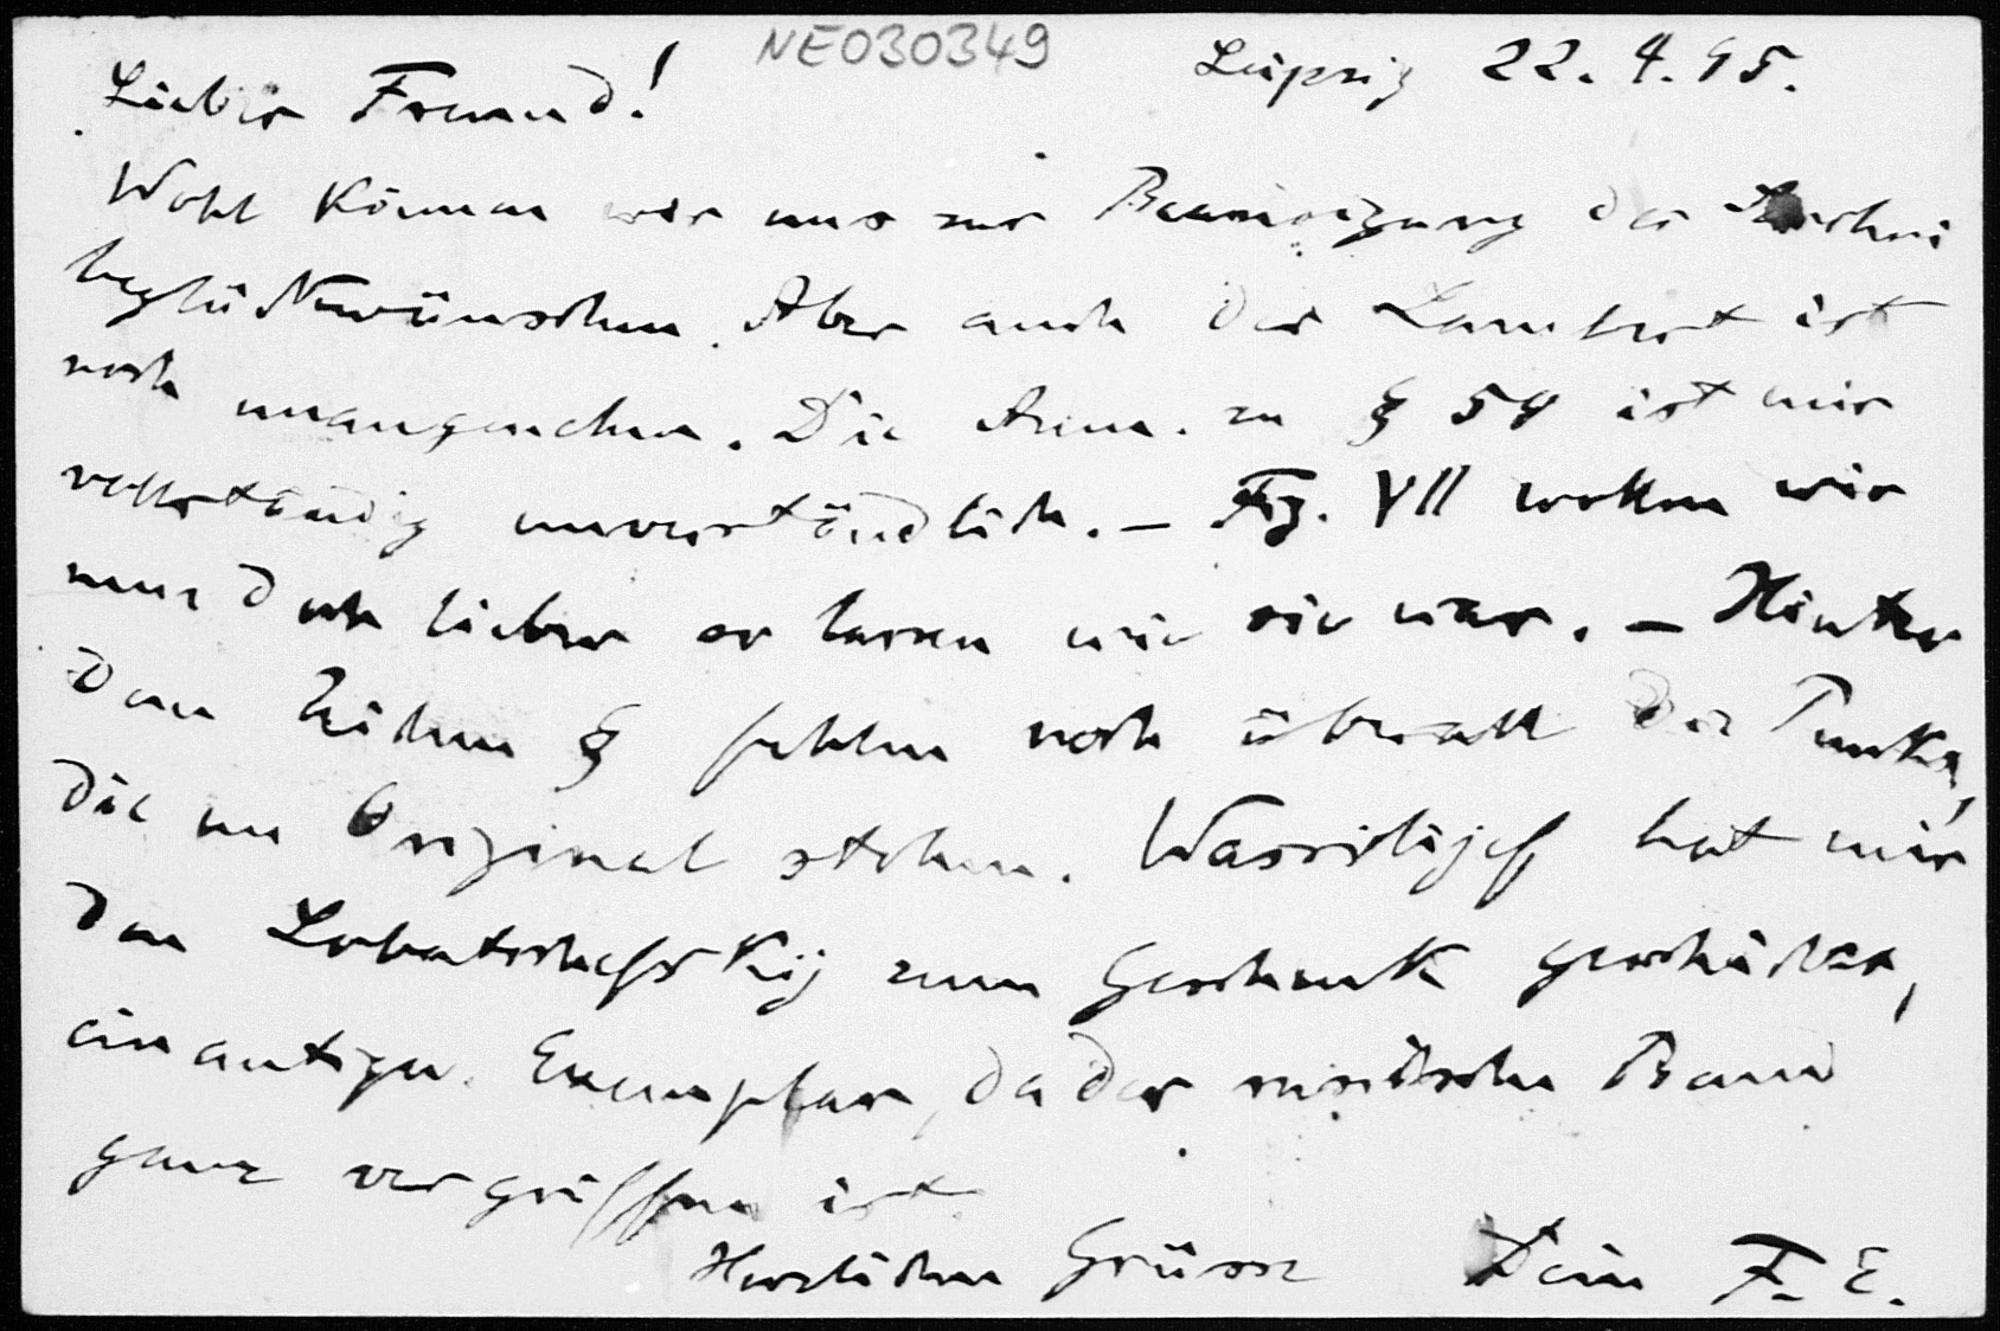 NE030349
Leipzig 22. 4. 95.
Lieber Freund!
Wohl können wir uns zur Beendigung des
beglückwünschen. Aber auch der Lambert ist
noch unangenehm. Die Anm. zu § 54 ist mir
vollständig unverständlich. – Fig. VII wollen wir
nur doch lieber so lassen wie sie war. – Hinter
den Zeichen § fehlen noch überall die Punkte,
die im Original stehen. Wassiliijeff hat mir
den Lobatschefskij zum Geschenk geschickt,
ein Exemplar, da der russische Band
ganz vergriffen ist
Herzlichen Grüsse Dein F. E.